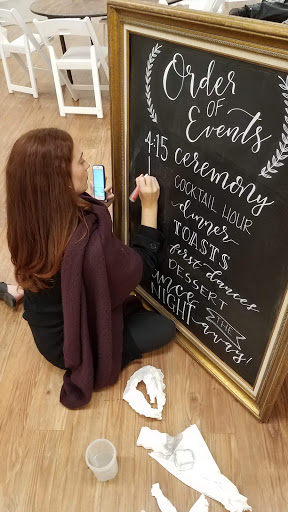 Order
OF
Events
4:15 ceremony
COCKTAIL HOUR
dinner
TOASTS
first dances
DESSERT
NIGHT THE
away!